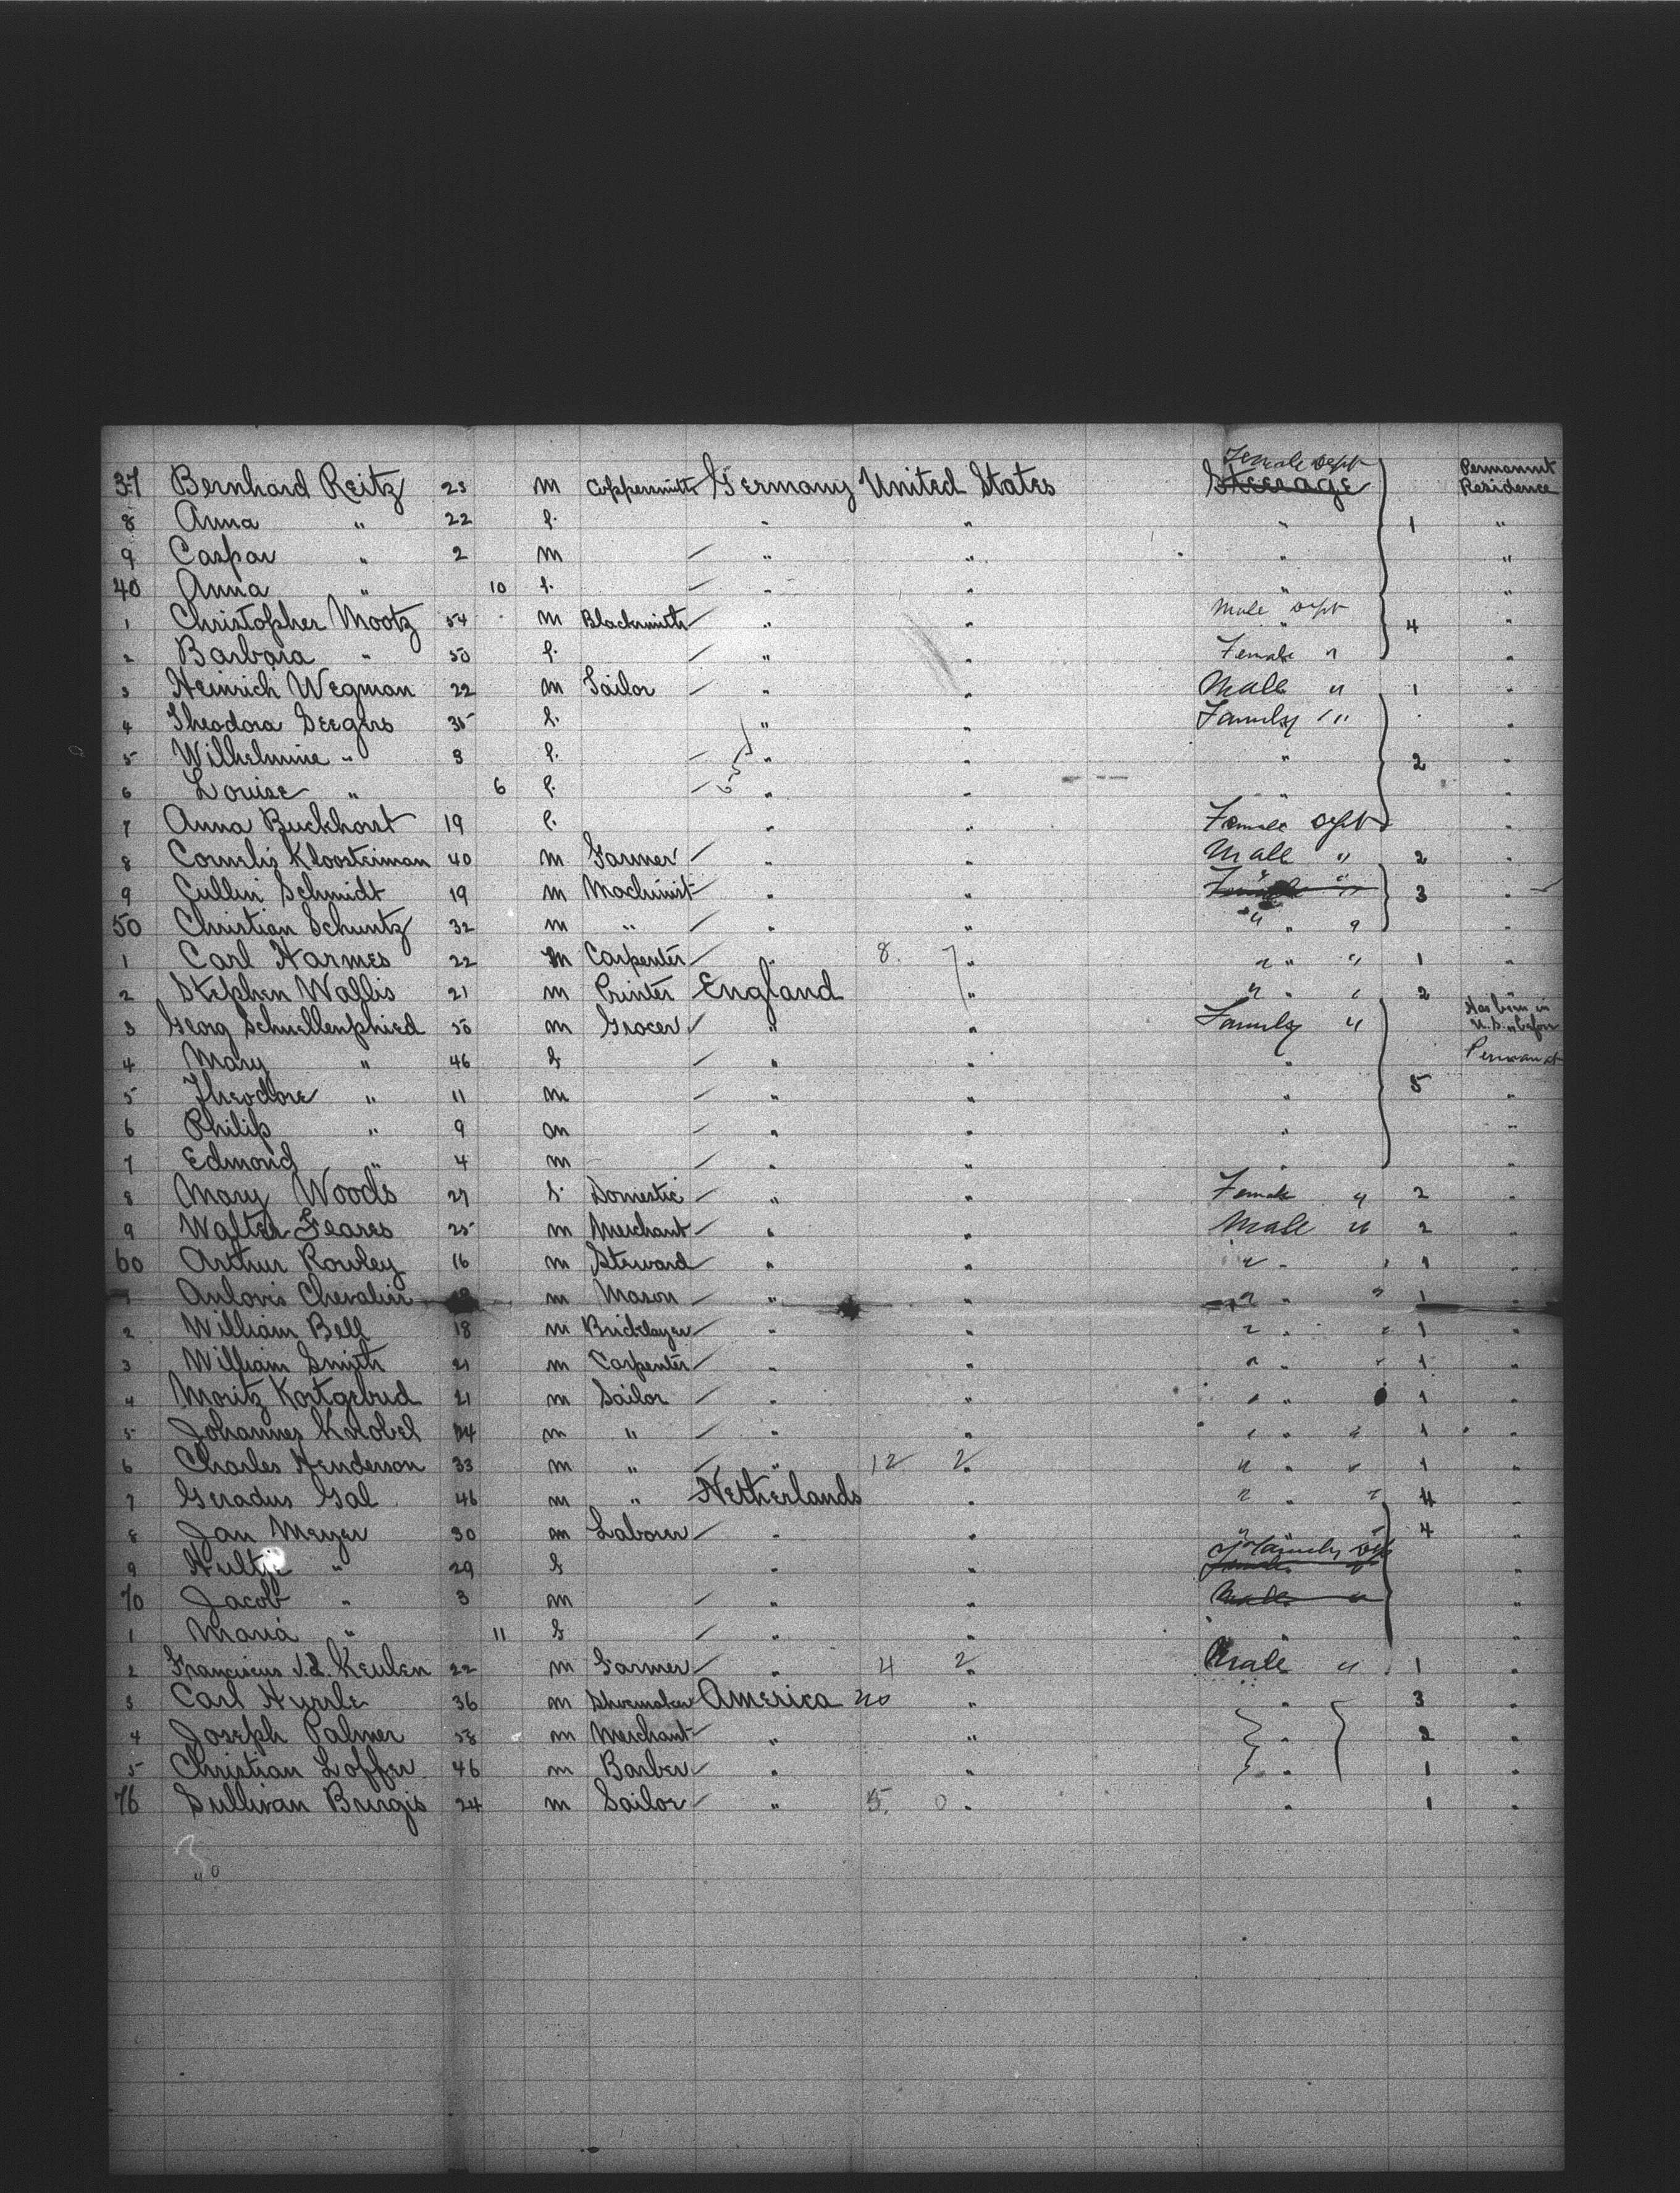 37 Bernhard Reitz 25 m Coppersmith Germany United States Female Dept Steerage Permanent Residence
8 Anna " 22 f. " " " 1 "
9 Caspar " 2 m " " " "
40 Anna " 10 f. " " " "
1 Christopher Mootz 54 m Blacksmith " " Male Dept " 4 "
2 Barbara " 50 f. " " Female " "
3 Heinrich Wegman 22 m Sailor " " Male " 1 "
4 Theodora Seegers 35 f. " " Family " "
5 Wilhelmine " 3 f. " " " 2 "
6 Louise " 6 f. " " " "
7 Anna Buckhorst 19 f. " " Female Dept "
8 Cornelis Kloosterman 40 m Farmer " " Male " 2 "
9 Schmidt 19 m Machinist " " " " 3 "
50 Christian Schuntz 32 m " " " " " "
1 Carl Harmes 22 m Carpenter " 8. 7 " " " " 1 "
2 Stephen Wallis 21 m Printer England " " " " 2 "
3 Georg Schnellenphied 50 m Grocer " " Family " Has been in U.S. before
4 Mary " 46 f " " " Permanent
5 Theodore " 11 m " " " 5 "
6 Philip " 9 m " " " "
7 Edmond " 4 m " " " "
8 Mary Woods 27 f. Domestic " " Female " 2 "
9 Walter Feares 25 m Merchant " " Male " 2 "
60 Arthur Rowley 16 m Steward " " " " 1 "
1 Chevalier m Mason " " " " 1 "
2 William Bell 18 m Bricklayer " " " " " 1 "
3 William Smith 21 m Carpenter " " " " " 1 "
4 Moritz Kortgebud 21 m Sailor " " " " 1 "
5 Johannes Knobel 24 m " " " " " " 1 "
6 Charles Henderson 33 m " " 12 2 " " " " 1 "
7 Geradus Gal 46 m " Netherlands " " " " 4 "
8 Jan Meyer 30 m Laborer " " " " 4 "
9 Hultje " 29 f " " Family Dept "
70 Jacob " 3 m " " Male " "
1 Maria " 11 f " " " "
2 Franciscus Keulen 22 m Farmer " 4 2 " Male " 1 "
3 Carl Hyrrle 36 m Shoemaker America no " " 3 "
4 Joseph Palmer 58 m Merchant " " " 2 "
5 Christian Loffer 46 m Barber " " " 1 "
76 Sullivan Burgis 24 m Sailor " 5. 0 " " 1 "